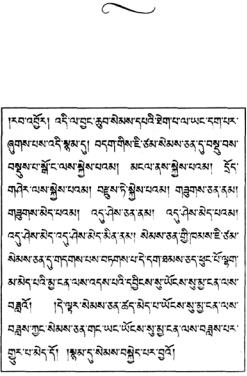 །རབ་འབྱོར། འདི་ལ་བྱང་ཆུབ་སེམས་དཔའི་ཐེག་པ་ལ་ཡང་དག་པར་
ཞུགས་པས་འདི་སྙམ་དུ། བདག་གིས་ཇི་ཙམ་སེམས་ཅན་དུ་བསྡུ་བས་
བསྡུས་པ་སྒོ་ང་ལས་སྐྱེས་པའམ། མངལ་ནས་སྐྱེས་པའམ། དྲོད་
གཤེར་ལས་སྐྱེས་པའམ། བརྫུས་ཏེ་སྐྱེས་པའམ། གཟུགས་ཅན་ནམ།
གཟུགས་མེད་པའམ། འདུ་ཤེས་ཅན་ནམ། འདུ་ཤེས་མེད་པའམ།
འདུ་ཤེས་མེད་འདུ་ཤེས་མེད་མིན་ནམ། སེམས་ཅན་གྱི་ཁམས་ཇི་ཙམ་
སེམས་ཅན་དུ་གདགས་པས་བཏགས་པ་དེ་དག་ཐམས་ཅད་ཕུང་པོ་ལྷག་
མ་མེད་པའི་མྱ་ངན་ལས་འདས་པའི་དབྱིངས་སུ་ཡོངས་སུ་མྱ་ངན་ལས་
བཟླའོ། །དེ་ལྟར་སེམས་ཅན་ཚད་མེད་པ་ཡོངས་སུ་མྱ་ངན་ལས་
བཟླས་ཀྱང་སེམས་ཅན་གང་ཡང་ཡོངས་སུ་མྱ་ངན་ལས་བཟླས་པར་
གྱུར་པ་མེད་དོ། །སྙམ་དུ་སེམས་བསྐྱེད་པར་བྱའོ།